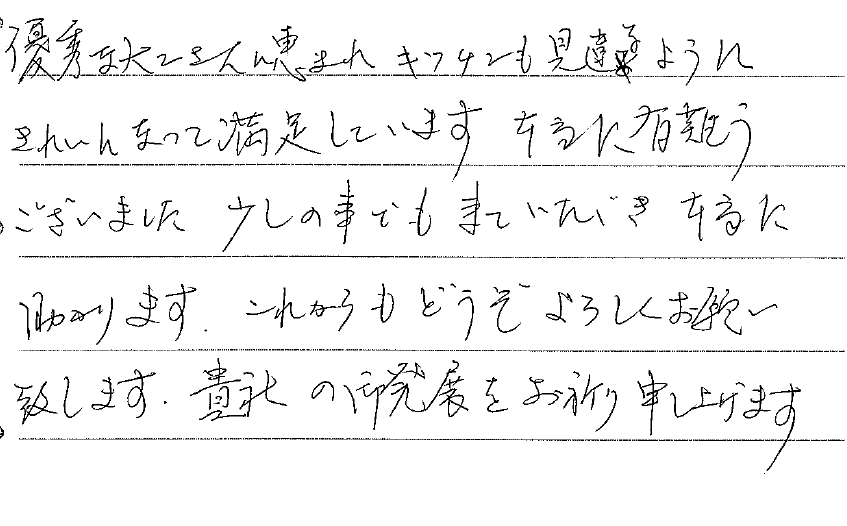 優秀な大工さんに恵まれ キッチンも見違えるように
きれいになって満足しています 本当に有難う
ございました 少しの事でも来ていただき 本当に
助かります. これからも どうぞ よろしくお願い
致します. 貴社 の御発展を お祈り 申し上げます